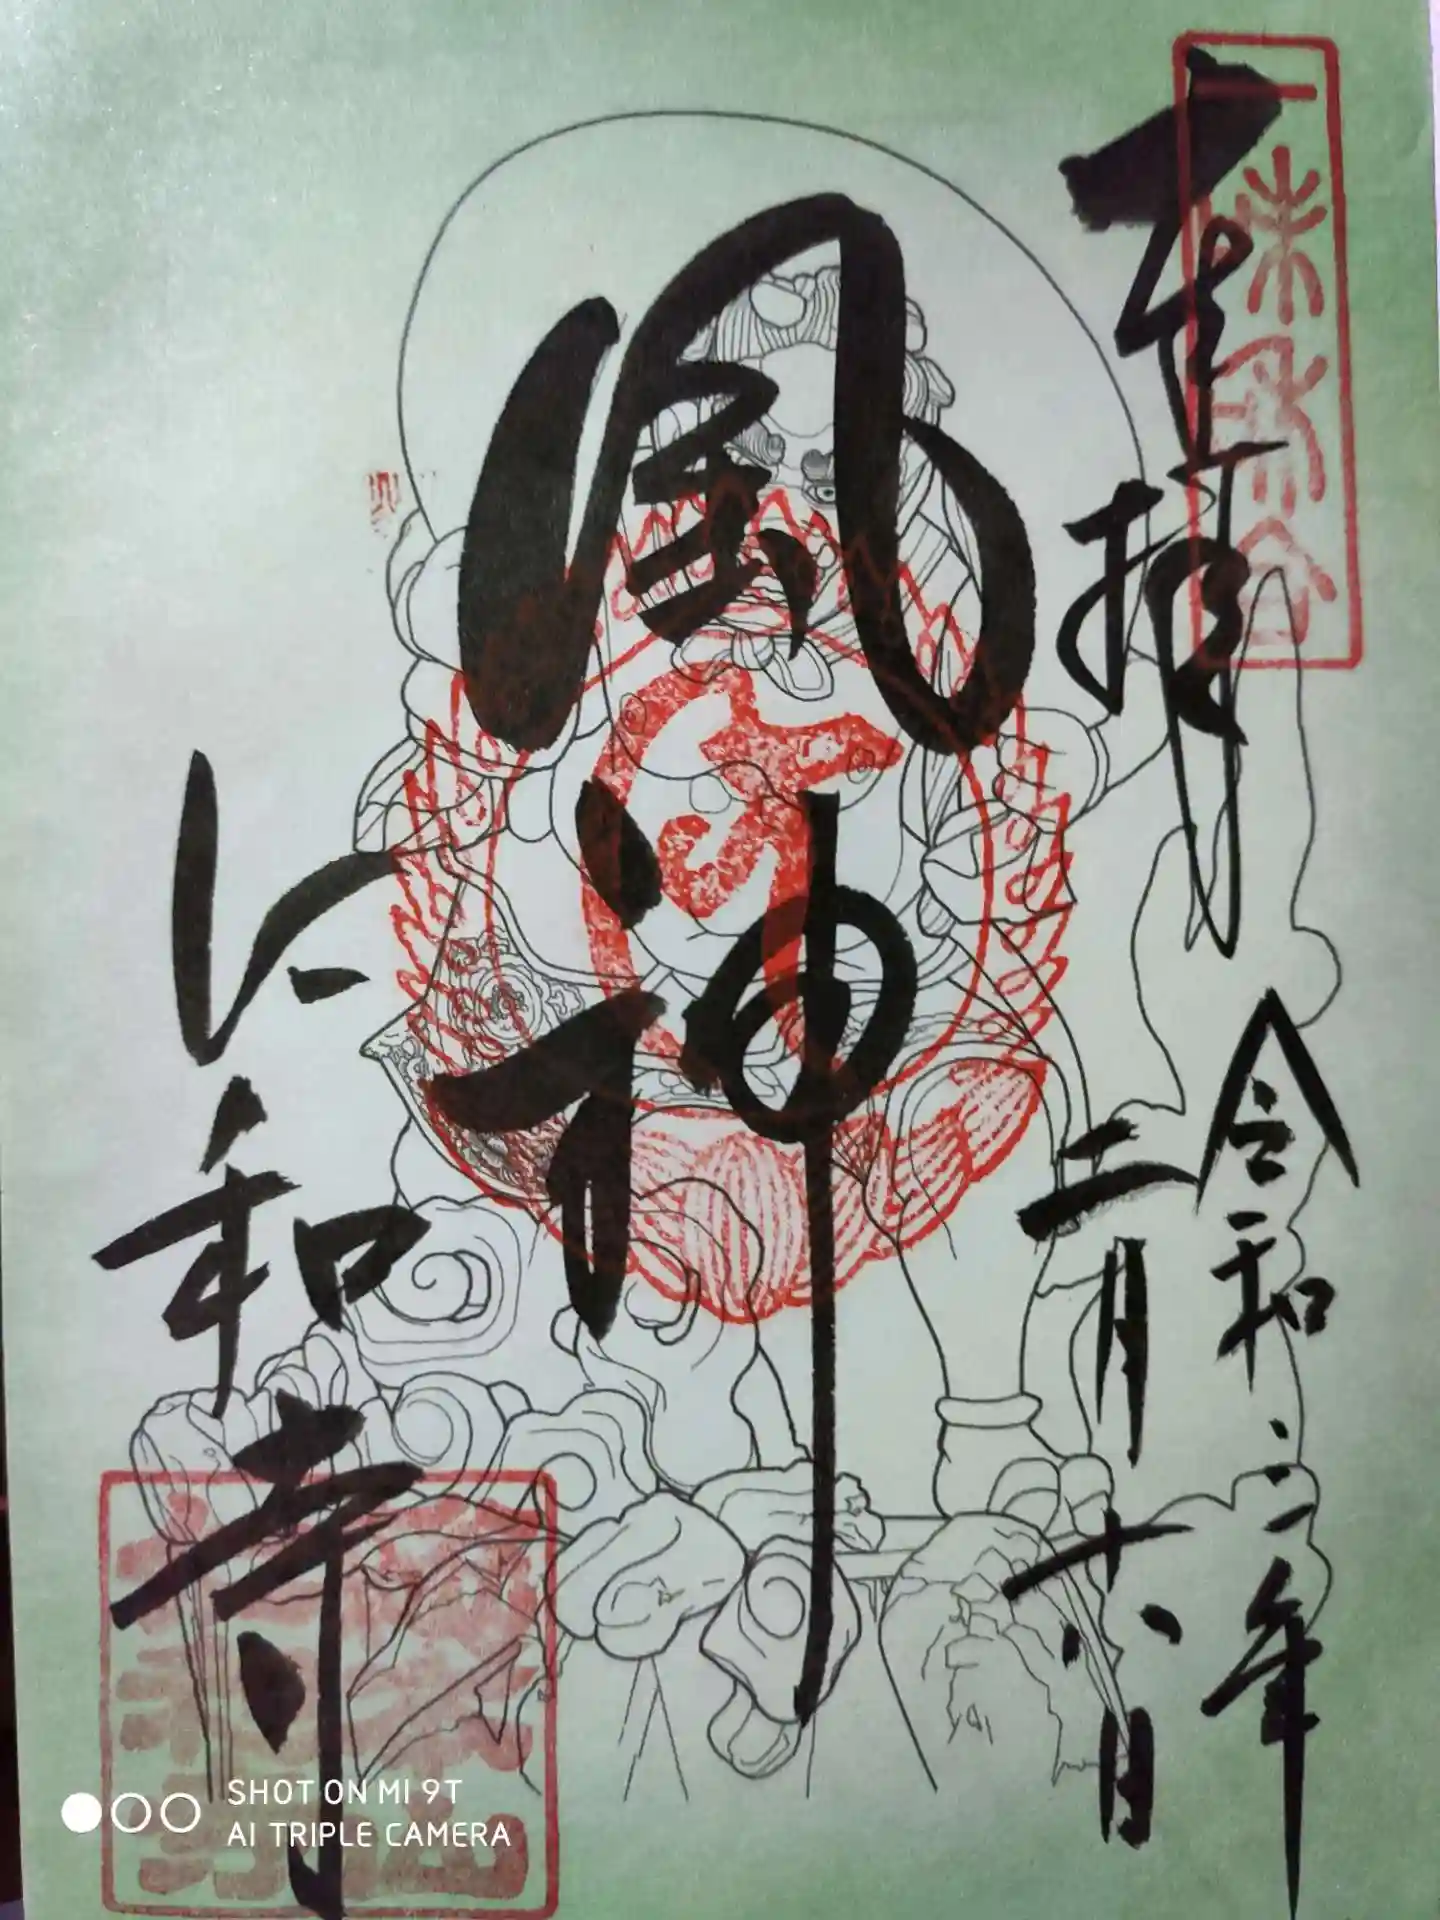 奉拝
令和三年
二月十八日
風神
仁和寺
SHOT ON MI 9T
AI TRIPLE CAMERA